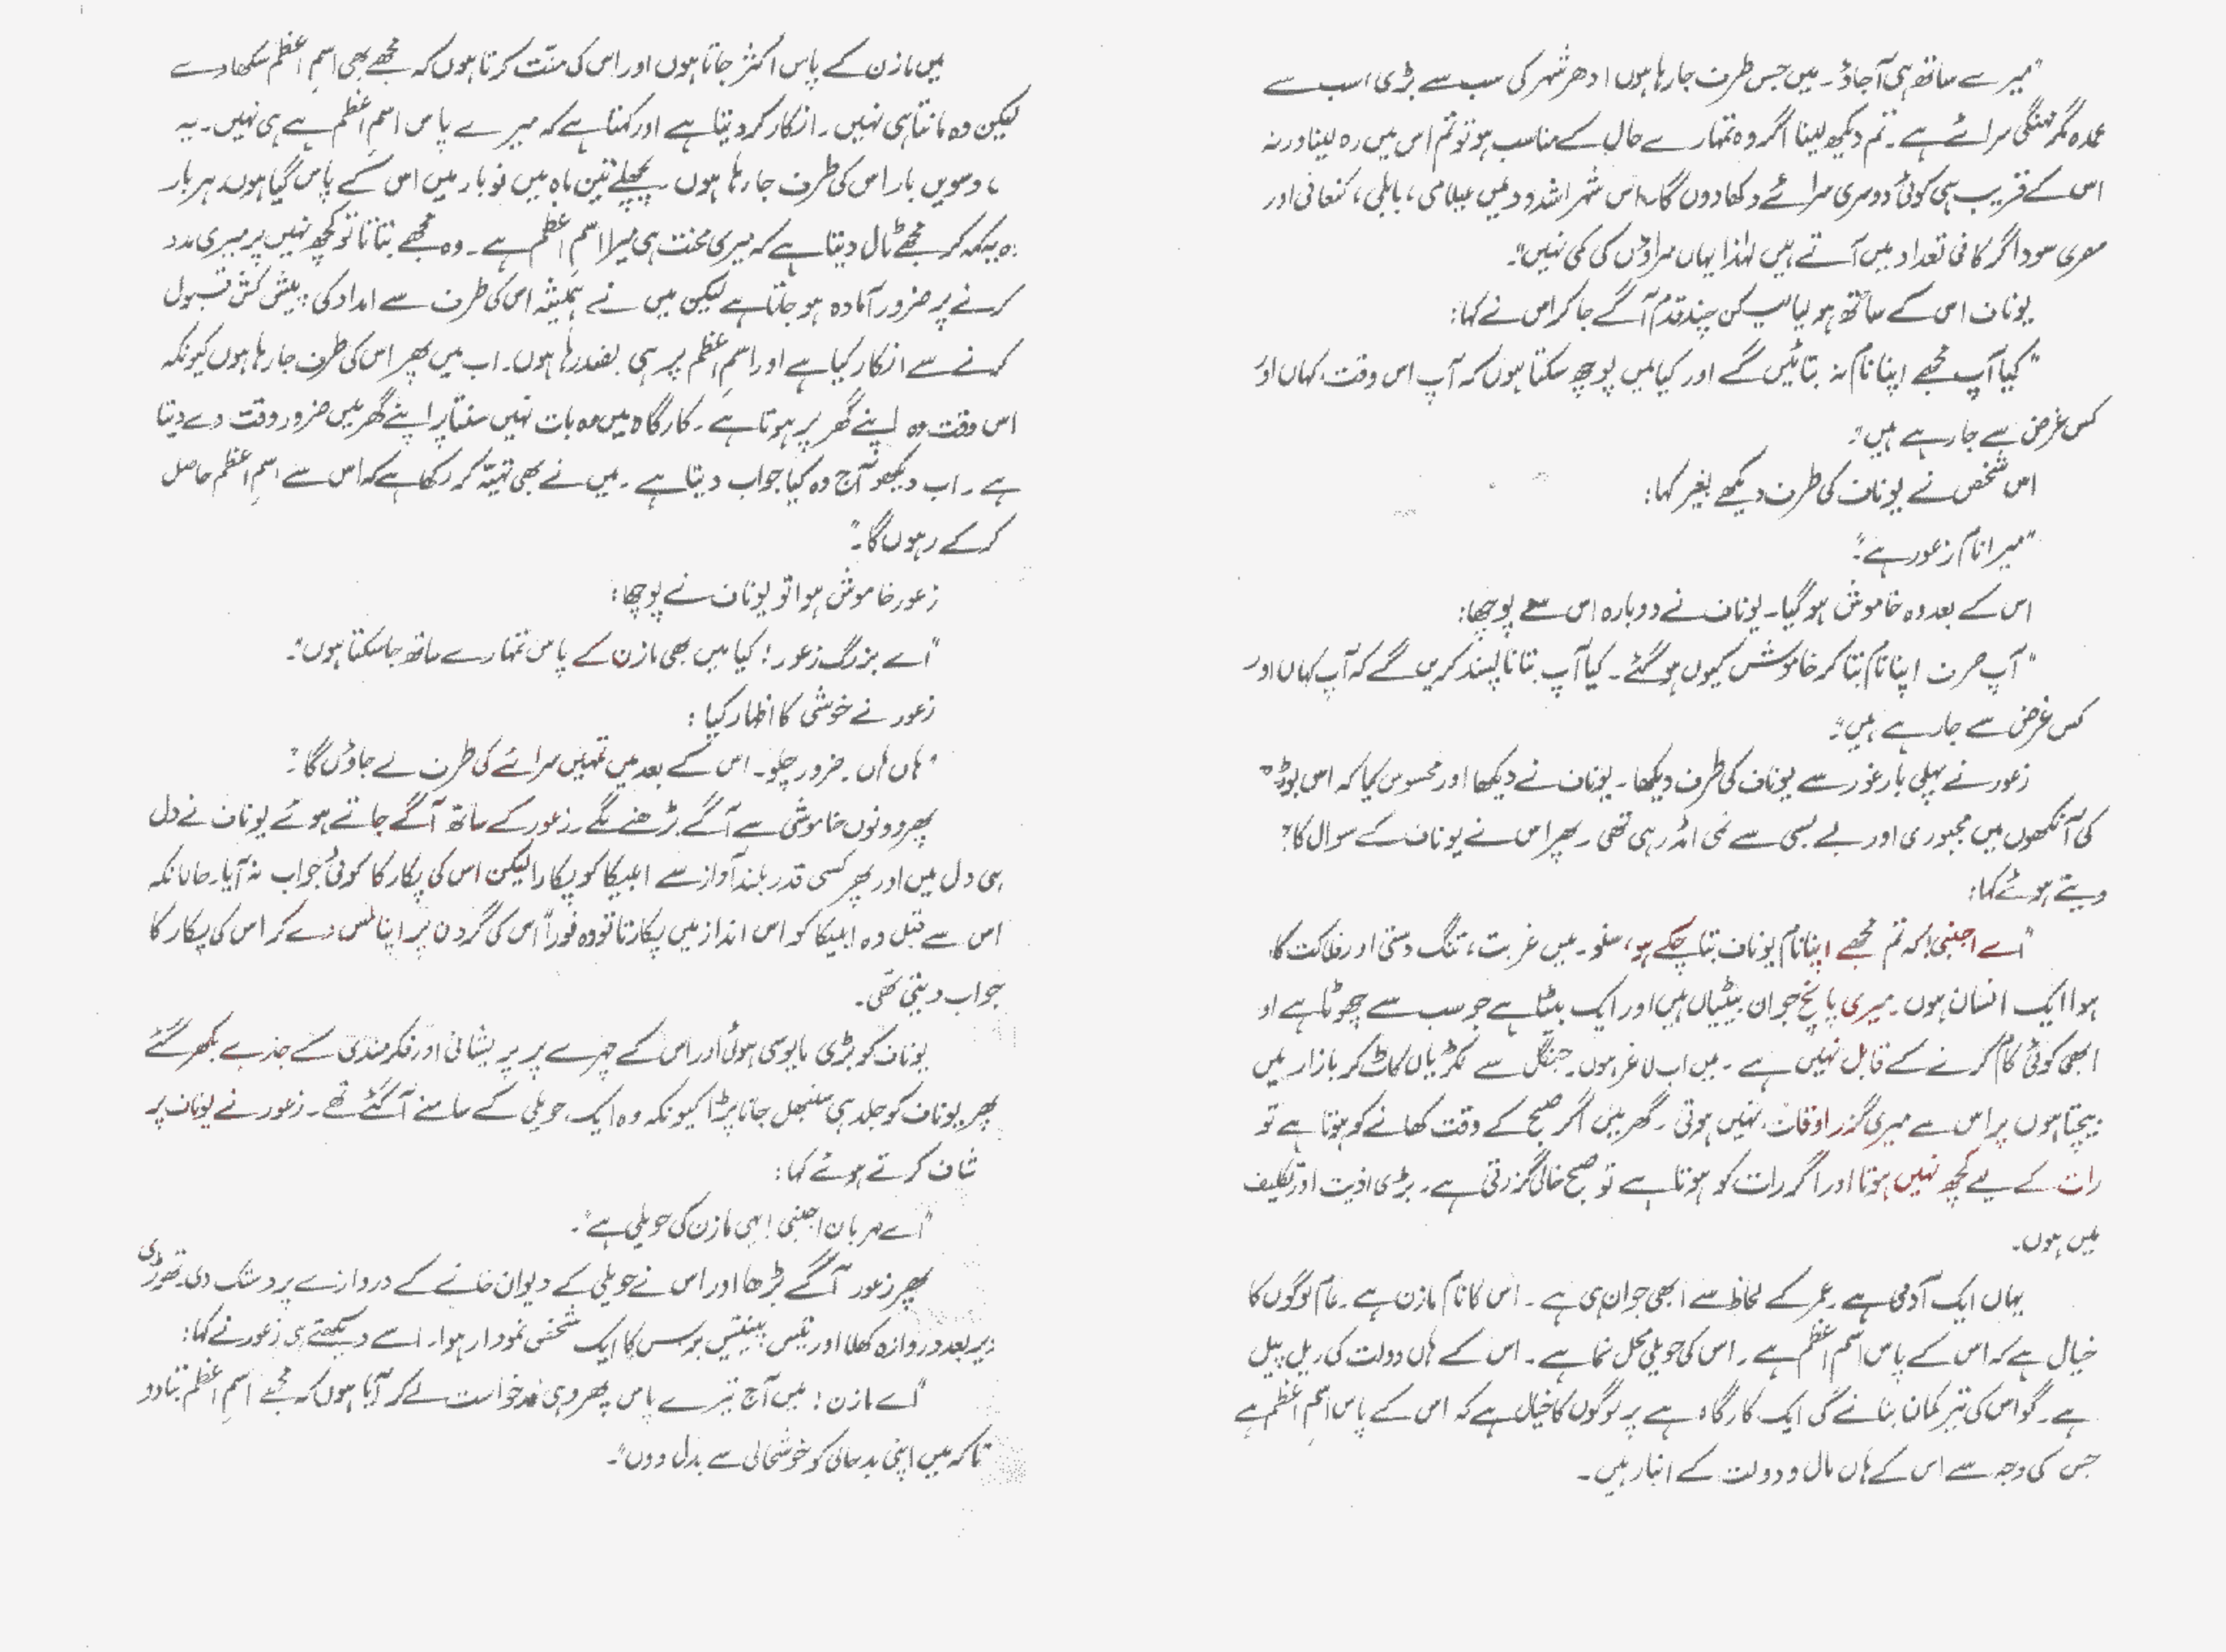 "میرے ساتھ ہی آ جاؤ۔ میں جس طرف جا رہا ہوں ادھر شہر کی سب سے بڑی اسب سے
عمدہ مگر مہنگی سرائے ہے۔ تم دیکھ لینا اگر وہ تمہارے حال کے مناسب ہو تو تم اس میں رہ لینا ورنہ
اس کے قریب ہی کوئی دوسری سرائے دکھا دوں گا۔ اس شہر اشدود میں عیلامی، بابلی، کنعانی اور
مصری سوداگر کافی تعداد میں آتے ہیں لہٰذا یہاں سراؤں کی کمی نہیں"۔
یوناف اس کے ساتھ ہو لیا لیکن چند قدم آگے جا کر اس نے کہا:
"کیا آپ مجھے اپنا نام نہ بتائیں گے اور کیا میں پوچھ سکتا ہوں کہ آپ اس وقت کہاں اور
کس غرض سے جا رہے ہیں"۔
اس شخص نے یوناف کی طرف دیکھے بغیر کہا:
"میرا نام زعور ہے"۔
اس کے بعد وہ خاموش ہو گیا۔ یوناف نے دوبارہ اس سے پوچھا:
"آپ صرف اپنا نام بتا کر خاموش کیوں ہو گئے۔ کیا آپ بتانا پسند کریں گے کہ آپ کہاں اور
کس غرض سے جا رہے ہیں"۔
زعور نے پہلی بار غور سے یوناف کی طرف دیکھا۔ یوناف نے دیکھا اور محسوس کیا کہ اس بوڑھے
کی آنکھوں میں مجبوری اور بے بسی سے نمی امڈ رہی تھی۔ پھر اس نے یوناف کے سوال کا
دیتے ہوئے کہا:
"اے اجنبی! کہ تم مجھے اپنا نام یوناف بتا چکے ہو، سنو۔ میں غربت، تنگ دستی اور فلاکت کا
ہوا ایک انسان ہوں۔ میری پانچ جوان بیٹیاں ہیں اور ایک بیٹا ہے جو سب سے چھوٹا ہے او
ابھی کوئی کام کرنے کے قابل نہیں ہے۔ میں اب لاغر ہوں۔ جنگل سے لکڑیاں کاٹ کر بازار میں
بیچتا ہوں پر اس سے میری گزر اوقات نہیں ہوتی۔ گھر میں اگر صبح کے وقت کھانے کو ہوتا ہے تو
رات کے لیے کچھ نہیں ہوتا اور اگر رات کو ہوتا ہے تو صبح خالی گزرتی ہے۔ بڑی اذیت اور تکلیف
میں ہوں۔
یہاں ایک آدمی ہے۔ عمر کے لحاظ سے ابھی جوان ہی ہے۔ اس کا نام مازن ہے۔ عام لوگوں کا
خیال ہے کہ اس کے پاس اسم اعظم ہے۔ اس کی حویلی محل نما ہے۔ اس کے ہاں دولت کی ریل پیل
ہے۔ گو اس کی تیر کمان بنانے کی ایک کارگاہ ہے پر لوگوں کا خیال ہے کہ اس کے پاس اسم اعظم ہے
جس کی وجہ سے اس کے ہاں مال و دولت کے انبار ہیں۔
میں مازن کے پاس اکثر جاتا ہوں اور اس کی منت کرتا ہوں کہ مجھے بھی اسم اعظم سکھا دے
لیکن وہ مانتا ہی نہیں۔ انکار کر دیتا ہے اور کہتا ہے کہ میرے پاس اسم اعظم ہے ہی نہیں۔ یہ
دسویں بار اس کی طرف جا رہا ہوں۔ پچھلے تین ماہ میں نو بار میں اس کے پاس گیا ہوں۔ ہر بار
وہ یہ کہہ کر مجھے ٹال دیتا ہے کہ میری محنت ہی میرا اسم اعظم ہے۔ وہ مجھے بتاتا تو کچھ نہیں پر میری مدد
کرنے پر ضرور آمادہ ہو جاتا ہے لیکن میں نے ہمیشہ اس کی طرف سے امداد کی پیش کش قبول
کرنے سے انکار کیا ہے اور اسم اعظم پر ہی بضد رہا ہوں۔ اب میں پھر اس کی طرف جا رہا ہوں کیونکہ
اس وقت وہ اپنے گھر پر ہوتا ہے۔ کارگاہ میں وہ بات نہیں سنتا پر اپنے گھر میں ضرور وقت دے دیتا
ہے۔ اب دیکھو آج وہ کیا جواب دیتا ہے۔ میں نے بھی تہیّہ کر رکھا ہے کہ اس سے اسم اعظم حاصل
کر کے رہوں گا"۔
زعور خاموش ہوا تو یوناف نے پوچھا:
"اے بزرگ زعور! کیا میں بھی مازن کے پاس تمہارے ساتھ جا سکتا ہوں"۔
زعور نے خوشی کا اظہار کیا:
"ہاں ہاں۔ ضرور چلو۔ اس کے بعد میں تمہیں سرائے کی طرف لے جاؤں گا"۔
پھر دونوں خاموشی سے آگے بڑھنے لگے۔ زعور کے ساتھ آگے جاتے ہوئے یوناف نے دل
ہی دل میں اور پھر کسی قدر بلند آواز سے ابلیکا کو پکارا لیکن اس کی پکار کا کوئی جواب نہ آیا۔ حالانکہ
اس سے قبل وہ ابلیکا کو اس انداز میں پکارتا تو وہ فوراً اس کی گردن پر اپنا لمس دے کر اس کی پکار کا
جواب دیتی تھی۔
یوناف کو بڑی مایوسی ہوئی اور اس کے چہرے پر پریشانی اور فکرمندی کے جذبے بکھر گئے
پھر یوناف کو جلد ہی سنبھل جانا پڑا کیونکہ وہ ایک حویلی کے سامنے آ گئے تھے۔ زعور نے یوناف پر
شاف کرتے ہوئے کہا:
"اے مہربان اجنبی! یہی مازن کی حویلی ہے"۔
پھر زعور آگے بڑھا اور اس نے حویلی کے دیوان خانے کے دروازے پر دستک دی۔ تھوڑی
دیر بعد دروازہ کھلا اور تیس پینتیس برس کا ایک شخص نمودار ہوا۔ اسے دیکھتے ہی زعور نے کہا:
"اے مازن! میں آج تیرے پاس پھر وہی درخواست لے کر آیا ہوں کہ مجھے اسم اعظم بتا دو
تاکہ میں اپنی بدحالی کو خوشحالی سے بدل دوں"۔